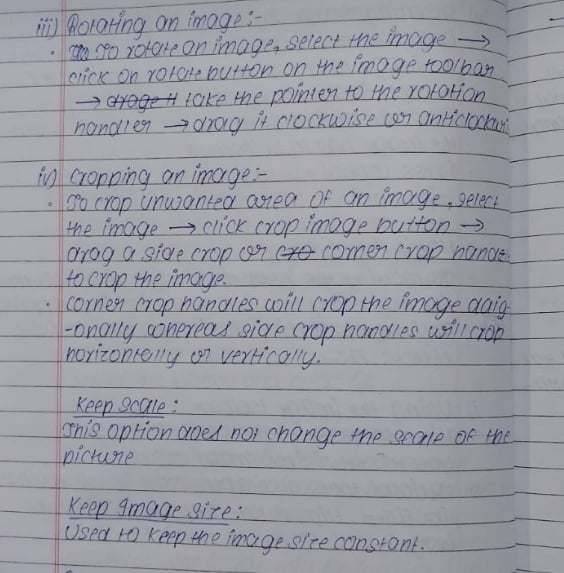 iii) Rotating an image:-
· To rotate an image, select the image →
click on rotate button on the image toolbar
→ take the pointer to the rotation
handler → drag it clockwise or anticlockwi
iv) Cropping an image:-
· To crop unwanted area of an image, select
the image → click crop image button →
drag a side crop or corner crop handle
to crop the image.
· Corner crop handles will crop the image daig
-onally whereas side crop handles will crop
horizontally or vertically.
Keep Scale:
This option does not change the scale of the
picture
Keep Image Size:
Used to keep the image size constant.